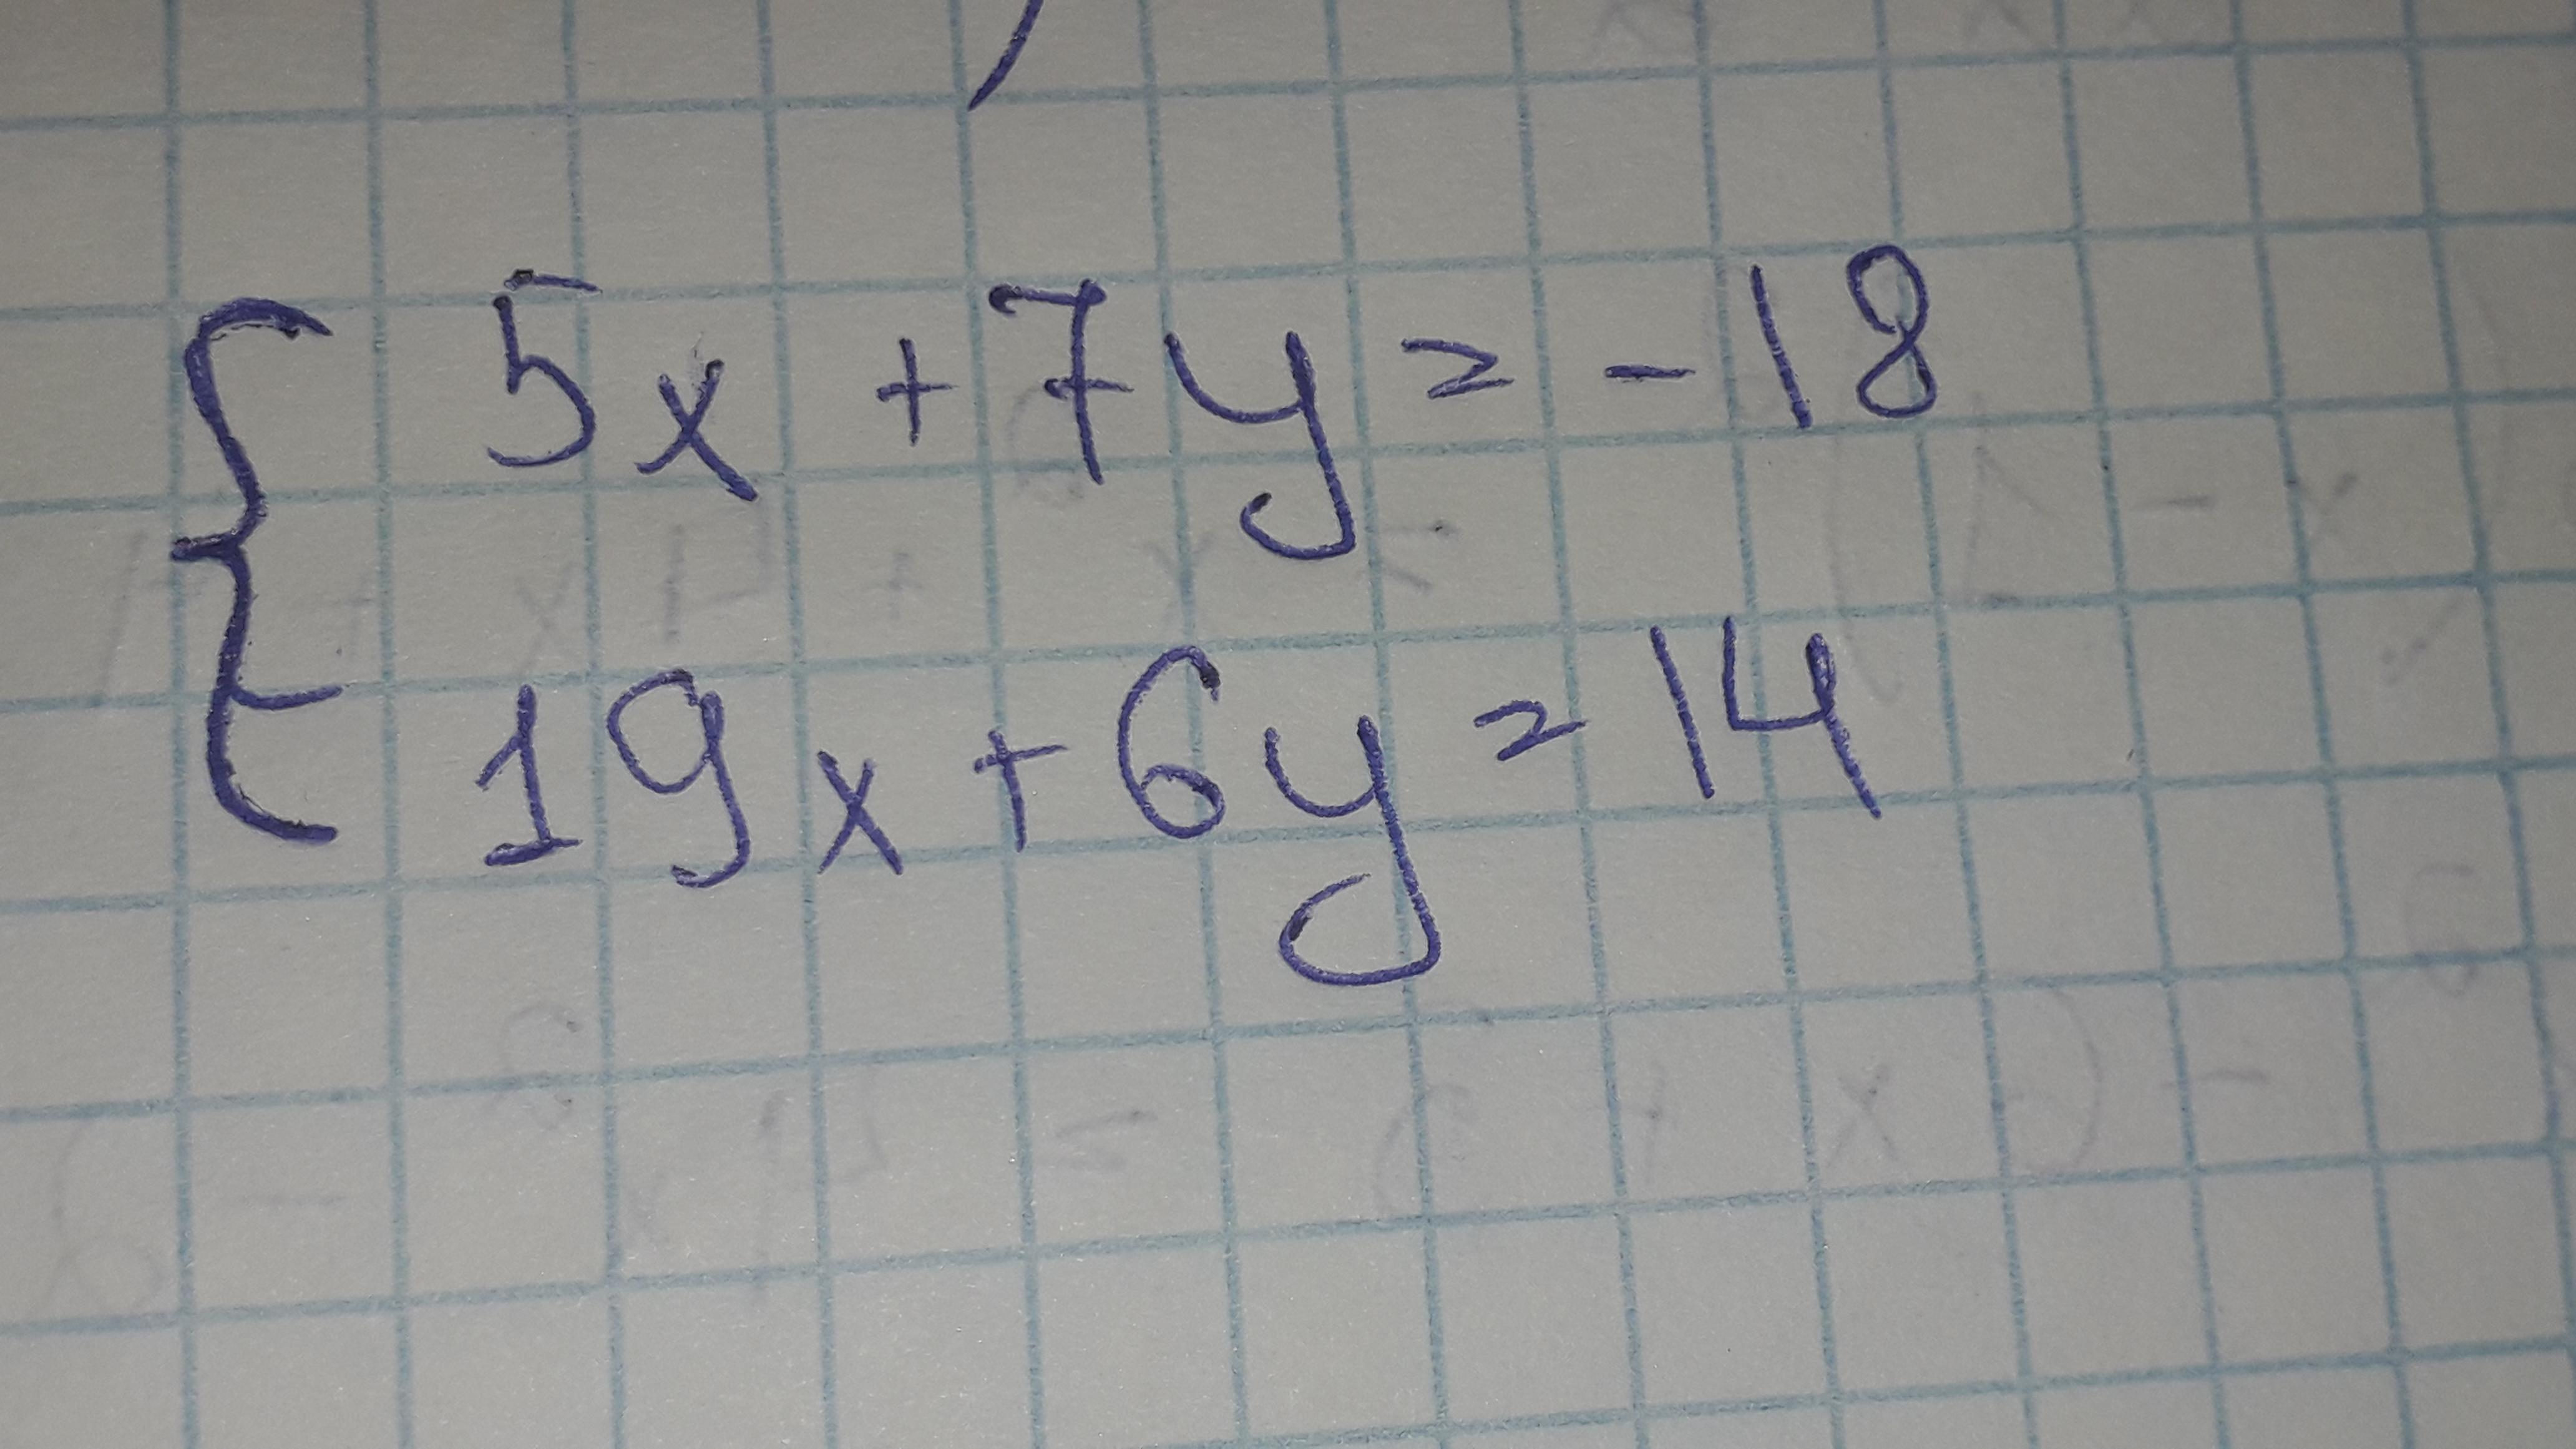 5x + 7y = -18
19x + 6y = 14